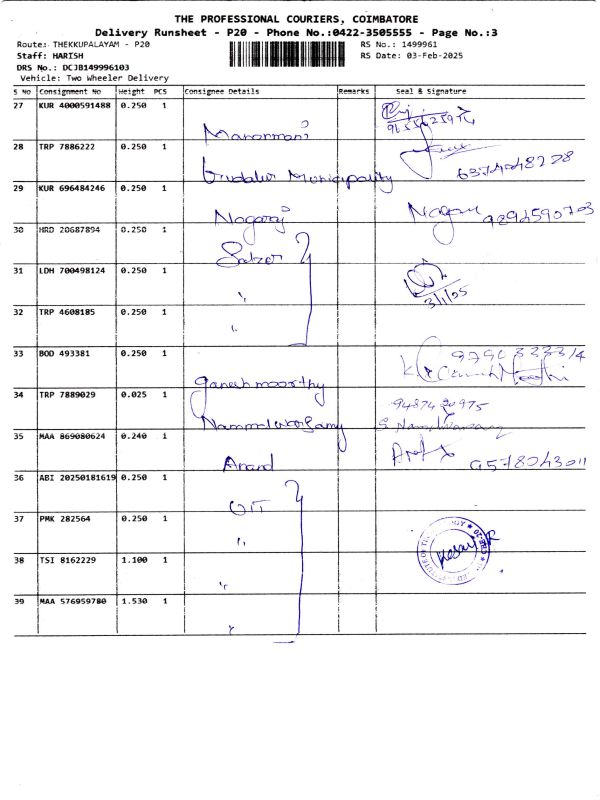 THE PROFESSIONAL COURIERS, COIMBATORE
Delivery Runsheet - P20 - Phone No.:0422-3505555 - Page No.:3
Route: THEKKUPALAYAM - P20 RS No.: 1499961
Staff: HARISH RS Date: 03-Feb-2025
DRS No.: DCJB149996103
Vehicle: Two Wheeler Delivery
S No Consignment No Height PCS Consignee Details Remarks Seal & Signature
27 KUR 4000591488 0.250 1 Manonmani
28 TRP 7886222 0.250 1 Gudalur Municipality 6374048228
29 KUR 696484246 0.250 1 Nagaraj Nagaraj
30 HRD 20687894 0.250 1 Salzer
31 LDH 700498124 0.250 1 "
32 TRP 4608185 0.250 1 "
33 BOD 493381 0.250 1 Ganesh moorthy
34 TRP 7889029 0.025 1 9487420975
35 MAA 869080624 0.240 1 Anand 9578043011
36 ABI 20250181619 0.250 1
37 PMK 282564 0.250 1 "
38 TSI 8162229 1.100 1 "
39 MAA 576959780 1.530 1 "